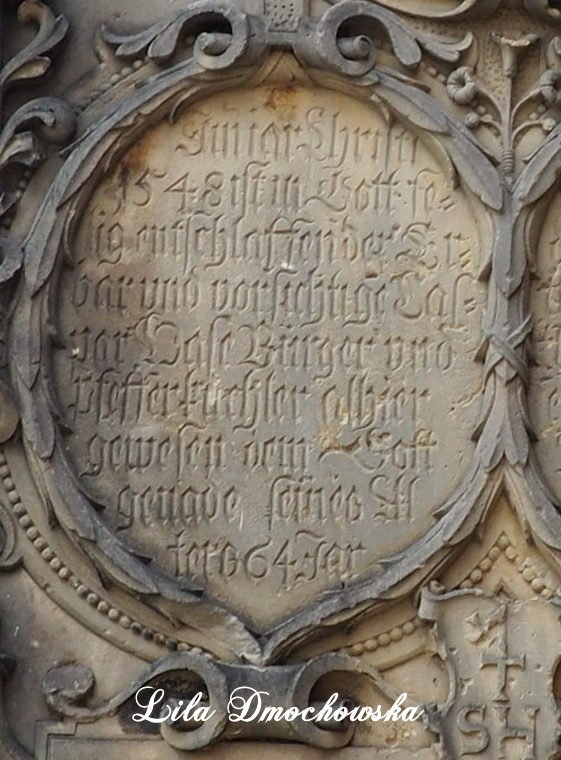 Im iar Christi
1548 ist in Gott se=
lig entschlaffen der Er=
bar vnd vorsichtige Cas=
par Hase Bürger vnd
Pfefferkuchler alhier
gewesen dem Gott
genade seines Al
ters 64 Jar
SH
Lila Dmochowska